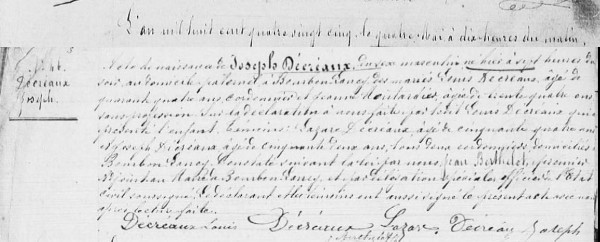 L'an mil huit cent quatre vingt cinq, le quatre Mai à dix heures du matin,
Décréaux
Joseph
Acte de naissance de Joseph Décréaux, du sexe masculin né hier à sept heures du
soir, au domicile paternel à Bourbon Lancy des mariés Louis Décréaux, âgé de
quarante quatre ans, cordonnier et Jeanne âgée de trente quatre ans
sans profession. Sur la déclaration à nous faite par ledit Louis Décréaux qui a
présenté l'enfant. témoins: Lazare Décréaux âgé de cinquante quatre ans
et Joseph Décréaux âgé de cinquante deux ans, tous deux cordonniers à
Bourbon Lancy. Constaté suivant la loi par nous, Jean Berthelot, premier
adjoint au Maire de Bourbon Lancy, et par délégation spéciale officier de l'Etat
civil soussigné, le déclarant et les témoins ont aussi signé le présent acte avec nous
après lecture faite.
Décréaux Louis Décréaux Lazare Décréau Joseph